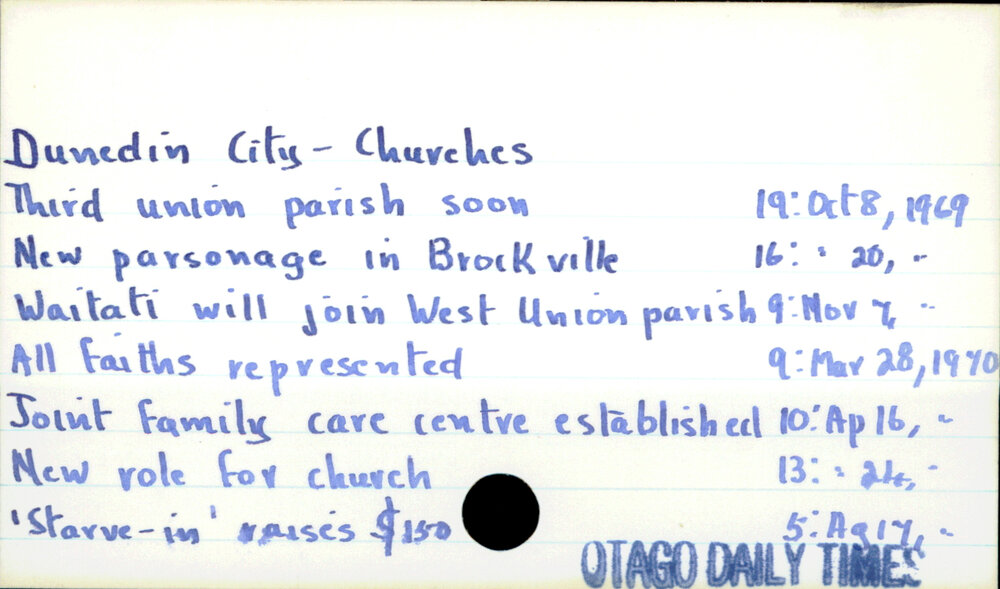 Dunedin City - Churches
Third union parish soon 19: Oct 8, 1969
New parsonage in Brockville 16: " 20, "
Waitati will join West Union parish 9: Nov 7, "
All faiths represented 9: Mar 28, 1970
Joint family care centre established 10: Ap 16, "
New role for church 13: " 24, "
'Starve-in' raises $150 5: Ag 17, "
OTAGO DAILY TIMES